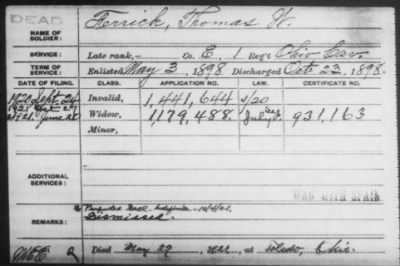 DEAD
Ferrick, Thomas W.
NAME OF SOLDIER:
SERVICE: Late rank, - Co. E, 1 Reg't Ohio Cav.
TERM OF SERVICE: Enlisted May 3, 1898 Discharged Oct. 23, 1898.
DATE OF FILING. CLASS. APPLICATION NO. CERTIFICATE NO.
1920 Sept. 24 Invalid, 1,441,644
Widow, 1,179,488. 931,163
Minor,
ADDITIONAL SERVICES:
WAR WITH SPAIN
REMARKS:
Dismissed.
Died May 29, at Toledo, Ohio.